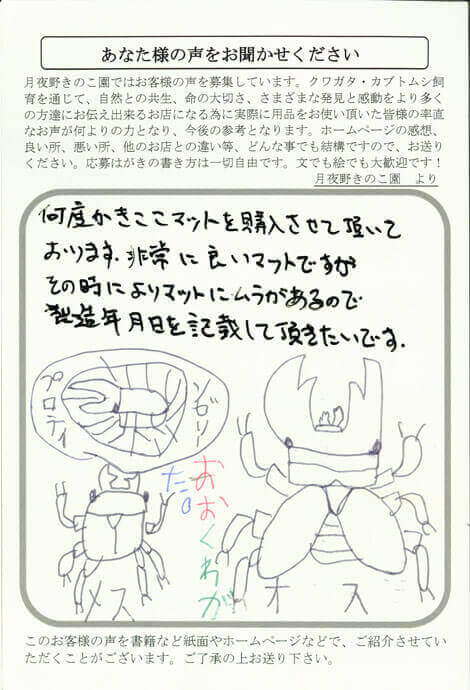 あなた様の声をお聞かせください
月夜野きのこ園ではお客様の声を募集しています。クワガタ・カブトムシ飼
育を通じて、自然との共生、命の大切さ、さまざまな発見と感動をより多く
の方達にお伝え出来るお店になる為に実際に用品をお使い頂いた皆様の率直
なお声が何よりの力となり、今後の参考となります。ホームページの感想、
良い所、悪い所、他のお店との違い等、どんな事でも結構ですので、お送り
ください。応募はがきの書き方は一切自由です。文でも絵でも大歓迎です！
月夜野きのこ園　より
何度かきここマットを購入させて頂いて
おります。非常に良いマットですが
その時によりマットにムラがあるので
製造年月日を記載して頂きたいです。
プロティ
ゼリー
おおくわが
だ。
メス
オス
このお客様の声を書籍など紙面やホームページなどで、ご紹介させてい
ただくことがございます。ご了承の上お送り下さい。